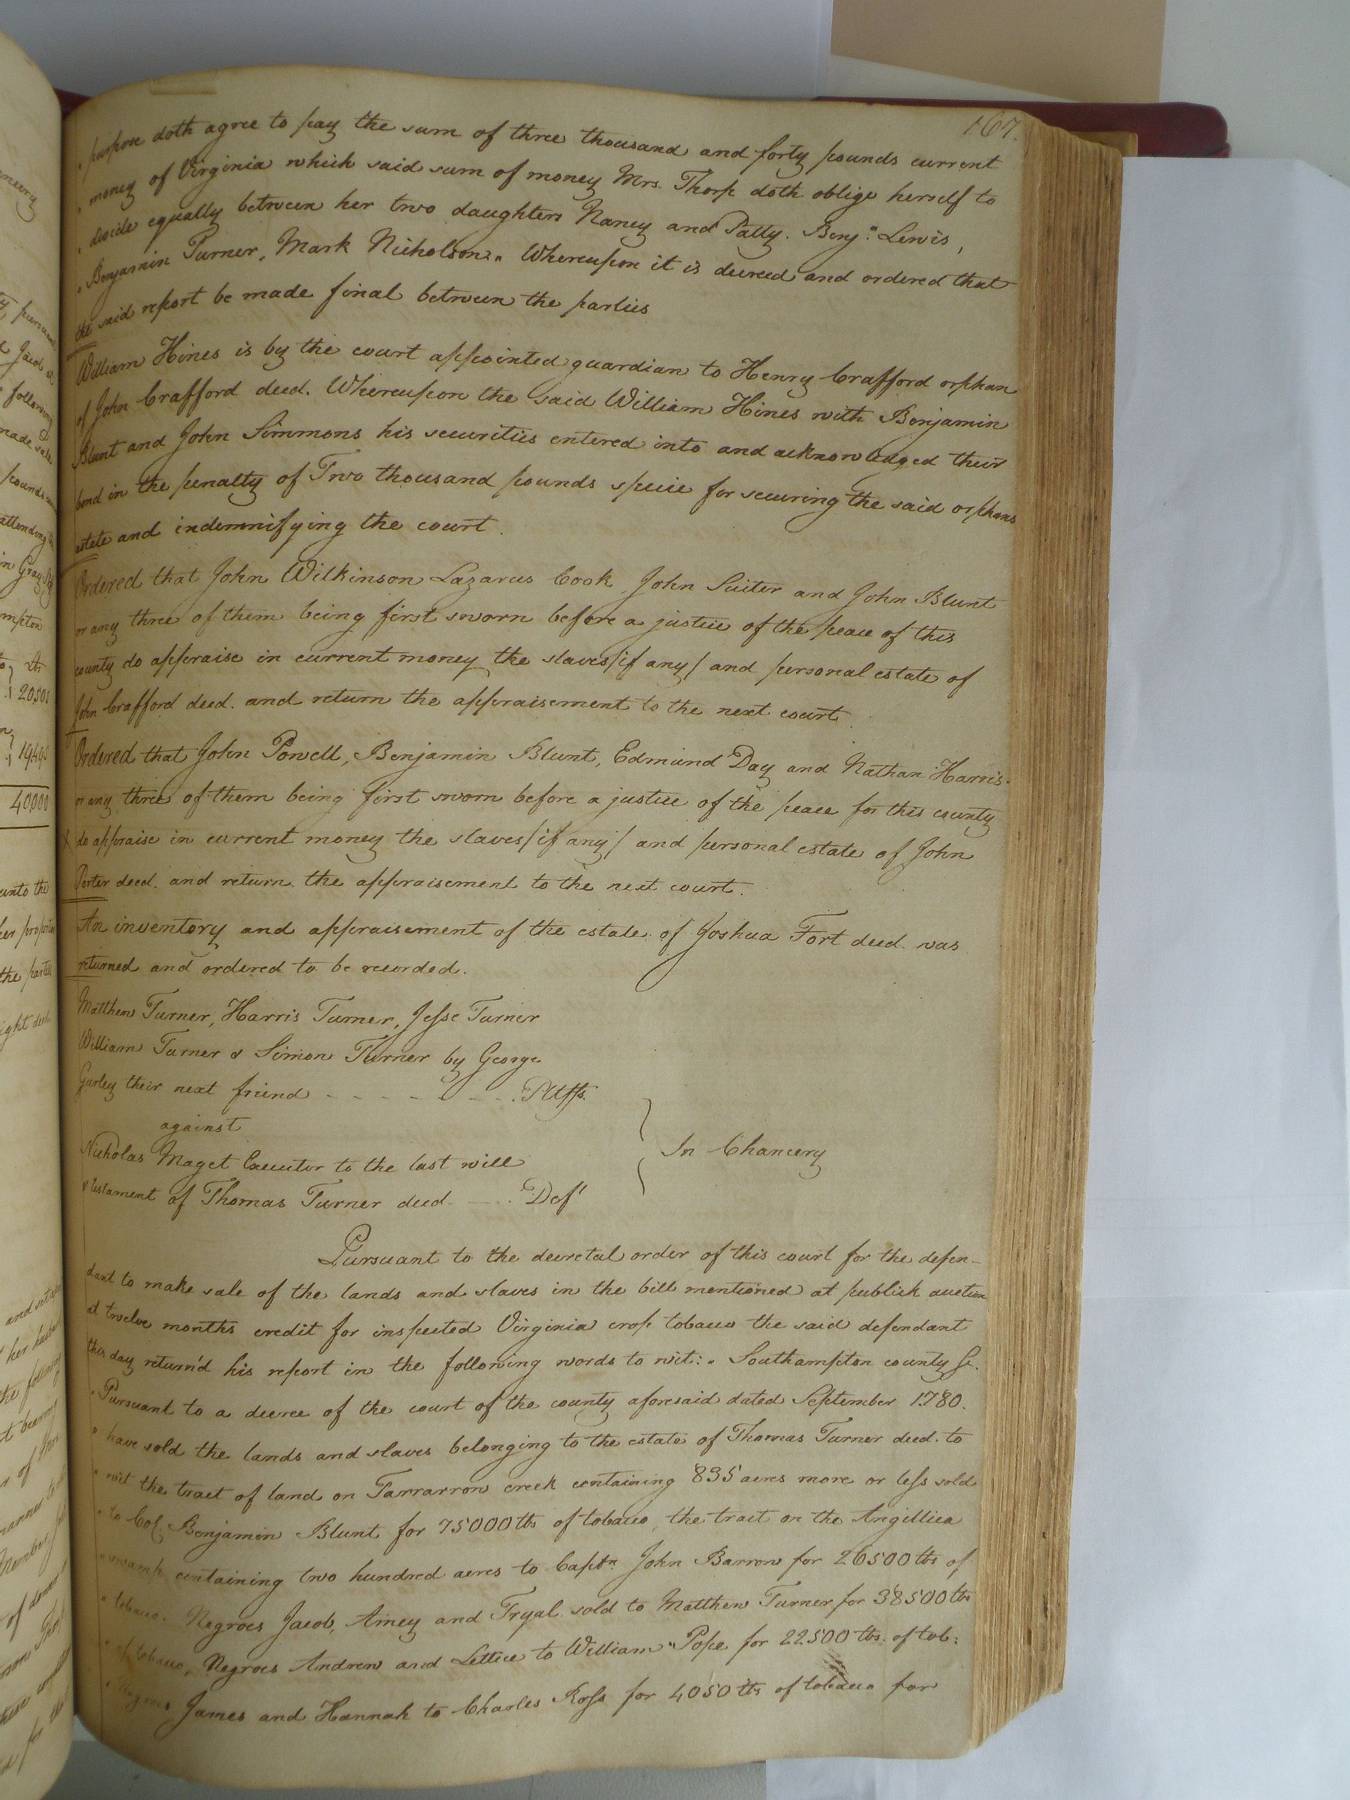 167.
" purpose doth agree to pay the sum of three thousand and forty pounds current
" money of Virginia which said sum of money Mrs. Thorp doth oblige herself to
" divide equally between her two daughters Nancy and Patty. Benj.n Lewis,
" Benjamin Turner, Mark Nicholson." Whereupon it is decreed and ordered that
the said report be made final between the parties
William Hines is by the court appointed guardian to Henry Crafford orphan
of John Crafford decd. Whereupon the said William Hines with Benjamin
Blunt and John Simmons his securities entered into and acknowledged their
bond in the penalty of Two thousand pounds specie for securing the said orphans
estate and indemnifying the court.
Ordered that John Wilkinson Lazarus Cook John Suiter and John Blunt
or any three of them being first sworn before a justice of the peace of this
county do appraise in current money the slaves/if any/ and personal estate of
John Crafford decd. and return the appraisement to the next court.
Ordered that John Powell, Benjamin Blunt, Edmund Day and Nathan Harris
or any three of them being first sworn before a justice of the peace for this county
do appraise in current money the slaves/if any/ and personal estate of John
Porter decd. and return the appraisement to the next court.
An inventory and appraisement of the estate of Joshua Fort decd. was
returned and ordered to be recorded.
Matthew Turner, Harris Turner, Jesse Turner
William Turner & Simon Turner by George
Gurley their next friend - - - - - - - Pltffs.
against
Nicholas Maget Executor to the last will
& testament of Thomas Turner decd. - - - Deft
In Chancery
Pursuant to the decretal order of this court for the defen-
dant to make sale of the lands and slaves in the bill mentioned at publick auction
at twelve months credit for inspected Virginia crop tobacco the said defendant
this day return'd his report in the following words to wit: " Southampton county Sc.
" Pursuant to a decree of the court of the county aforesaid dated September 1780.
" have sold the lands and slaves belonging to the estate of Thomas Turner decd. to
" wit the tract of land on Tarrarrow creek containing 835 acres more or less sold
" to Col. Benjamin Blunt for 75000 lbs of tobacco, the tract on the Angillica
" swamp containing two hundred acres to Captn. John Barrow for 26500 lbs of
" tobacco. Negroes Jacob, Amey and Tryal sold to Matthew Turner for 38500 lbs
" of tobacco, Negroes Andrew and Lettice to William Pope for 22500 lbs. of tob:
" Negroes James and Hannah to Charles Ross for 4050 lbs of tobacco for